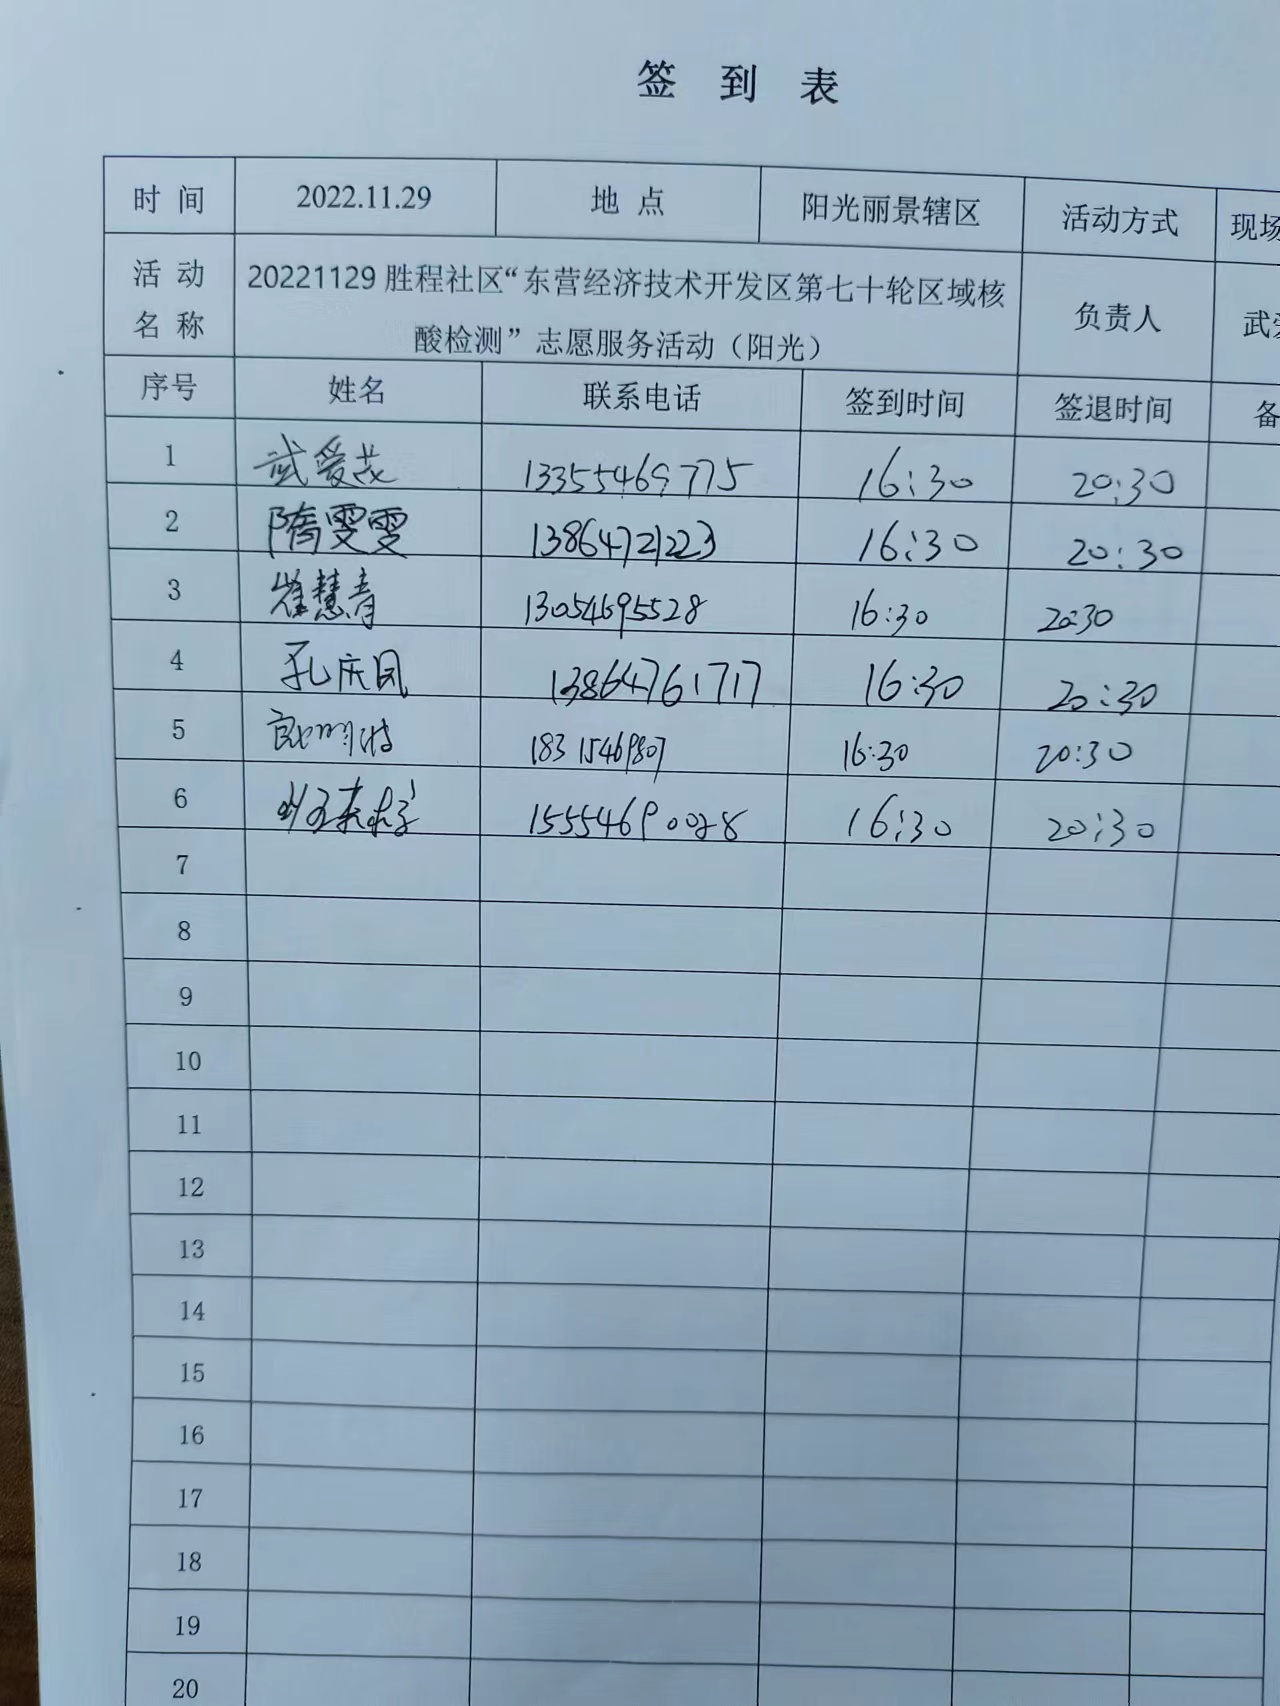 签 到 表
时 间 2022.11.29 地 点 阳光丽景辖区 活动方式 现场
活 动 名 称 20221129胜程社区“东营经济技术开发区第七十轮区域核
酸检测”志愿服务活动（阳光） 负责人 武
序号 姓名 联系电话 签到时间 签退时间 备
1 武爱茂 13355469775 16:30 20:30
2 隋雯雯 13864721223 16:30 20:30
3 崔慧青 13054695528 16:30 20:30
4 孔庆凤 13864761717 16:30 20:30
5 18315469807 16:30 20:30
6 15554690028 16:30 20:30
7
8
9
10
11
12
13
14
15
16
17
18
19
20